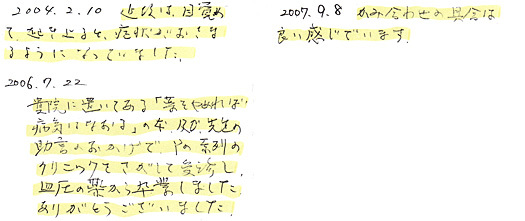 2004. 2. 10 近頃は、目覚め
て、起き上ると、症状がおさま
るようになっていました。
2006. 7. 22
貴院に置いてある「薬をやめれば
病気はなおる」の本、及び、先生の
助言のおかげで、
クリニックをさがして受診し、
血圧の薬から卒業しました。
ありがとうございました。
2007. 9. 8 かみ合わせの具合は
良い感じでいます。